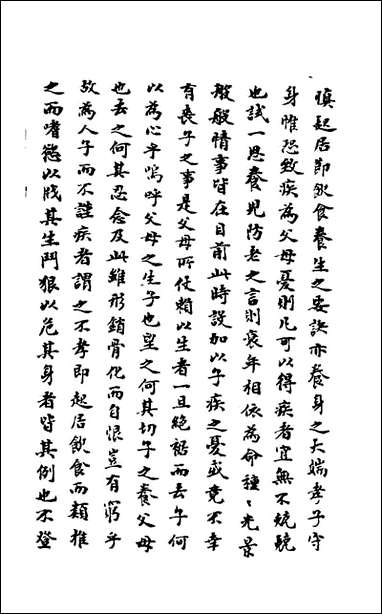 慎起居節飲食養生之要訣亦養身之大端孝子守
身惟恐致疾為父母憂則凡可以得疾者宜無不兢兢
也試一思養兒防老之言則衰年相依為命種種光景
般般情事皆在目前此時設加以子疾之憂或竟不幸
有喪子之事是父母所仗賴以生者一旦絕裾而去何
以為心乎嗚呼父母之生子也望之何其切子之養父母
也去之何其忍念及此雖形銷骨化而自恨豈有窮乎
故為人子而不謹疾者謂之不孝即起居飲食而類推
之而嗜慾以戕其生鬥狠以危其身者皆其例也不登